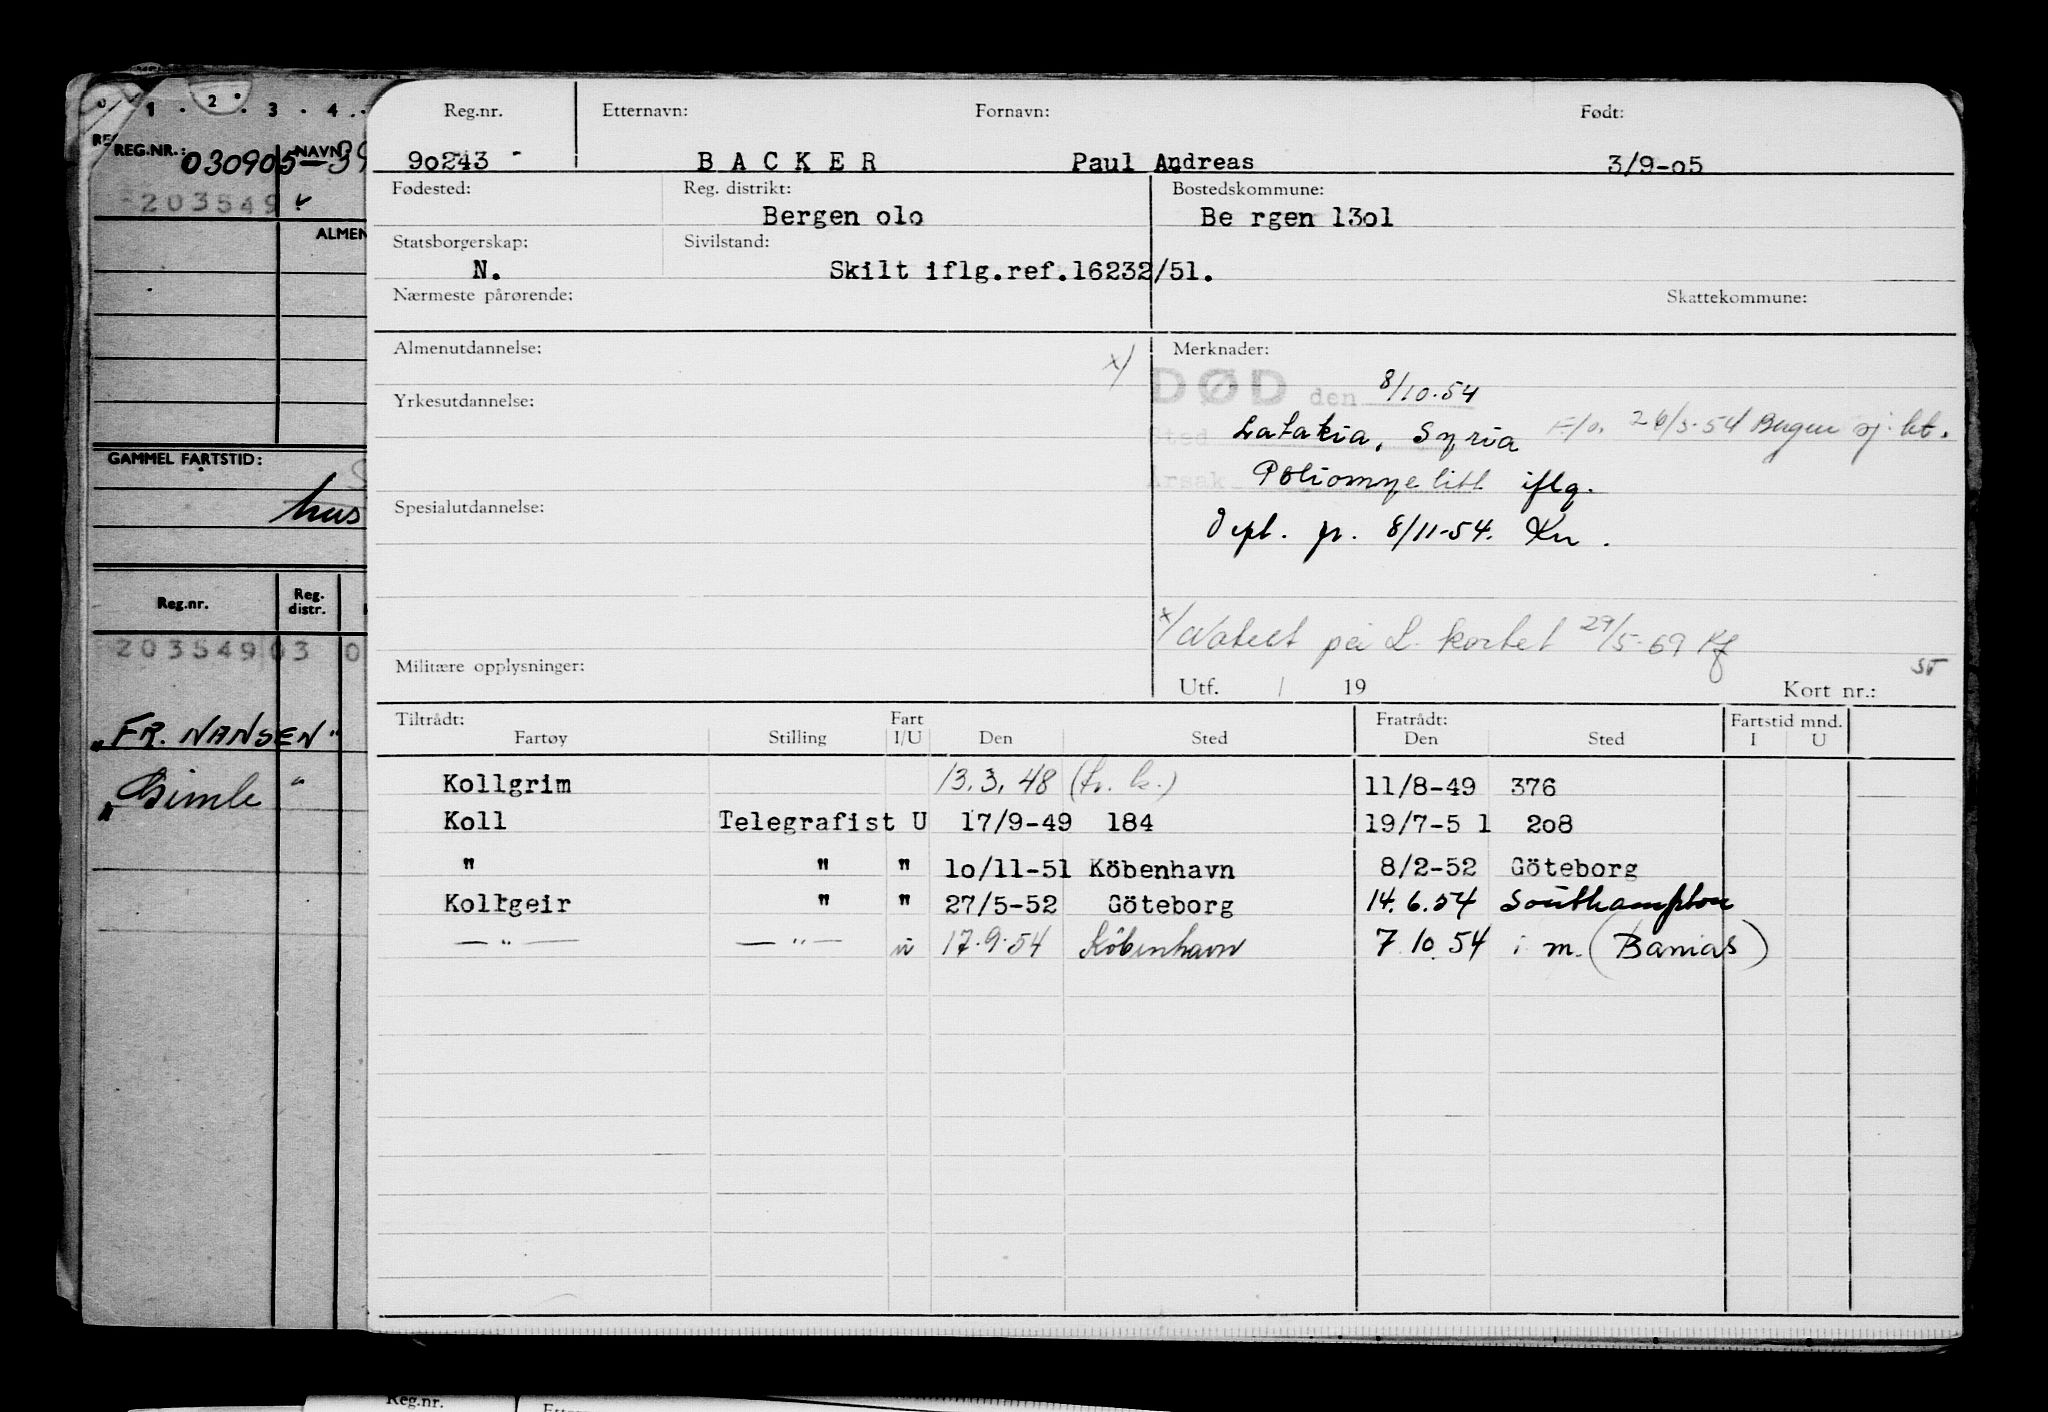 1 . 2 . 3 . 4 .
REG.NR.: 030905 NAVN
203549
ALMEN
GAMMEL FARTSTID:
hus
Reg.nr. Reg. distr.
203549 03 0
"FR. NANSEN"
"Gimle"
Reg.nr. Etternavn: Fornavn: Født:
9o243 - B A C K E R Paul Andreas 3/9-o5
Fødested: Reg. distrikt: Bostedskommune:
Bergen o1o Be rgen 13o1
Statsborgerskap: Sivilstand:
N. Skilt iflg.ref.16232/51.
Nærmeste pårørende: Skattekommune:
Almenutdannelse: x/ Merknader:
DØD den 8/10.54
Yrkesutdannelse:
Sted Latakia, Syria F/o. 26/3-54 Bergen sj.kt.
Årsak Poliomyelitt iflg.
Spesialutdannelse:
8/11-54. Kn.
x/ Notert på L. kortet 29/5-69 Kf
Militære opplysninger:
ST
Utf. / 19 Kort nr.:
Tiltrådt: Fart Fratrådt: Fartstid mnd.
Fartøy Stilling I/U Den Sted Den Sted I U
Kollgrim 13.3.48 (fr. b.) 11/8-49 376
Koll Telegrafist U 17/9-49 184 19/7-5 1 2o8
" " " 1o/11-51 Köbenhavn 8/2-52 Göteborg
Kollgeir " " 27/5-52 Göteborg 14.6.54 Southampton
— " — — " — u 17.9.54 København 7.10.54 i m. (Banias)
Reg.nr.